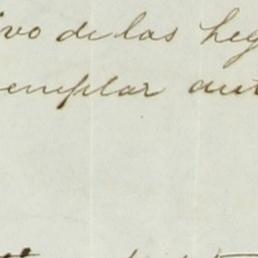 ivo de las heg
emplar aut